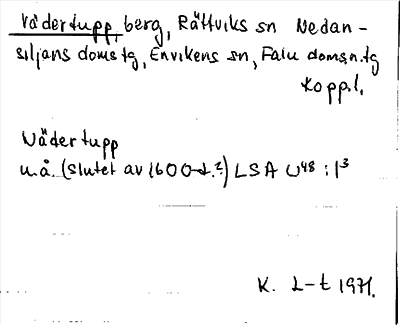 Vädertupp, berg, Rättviks sn Nedan-
siljans domstg, Envikens sn, Falu doms.n.tg
Kopp.l.
Vädertupp
u.å. (slutet av 1600-t.?) LSA U48 : 1³
K. L-t 1971.